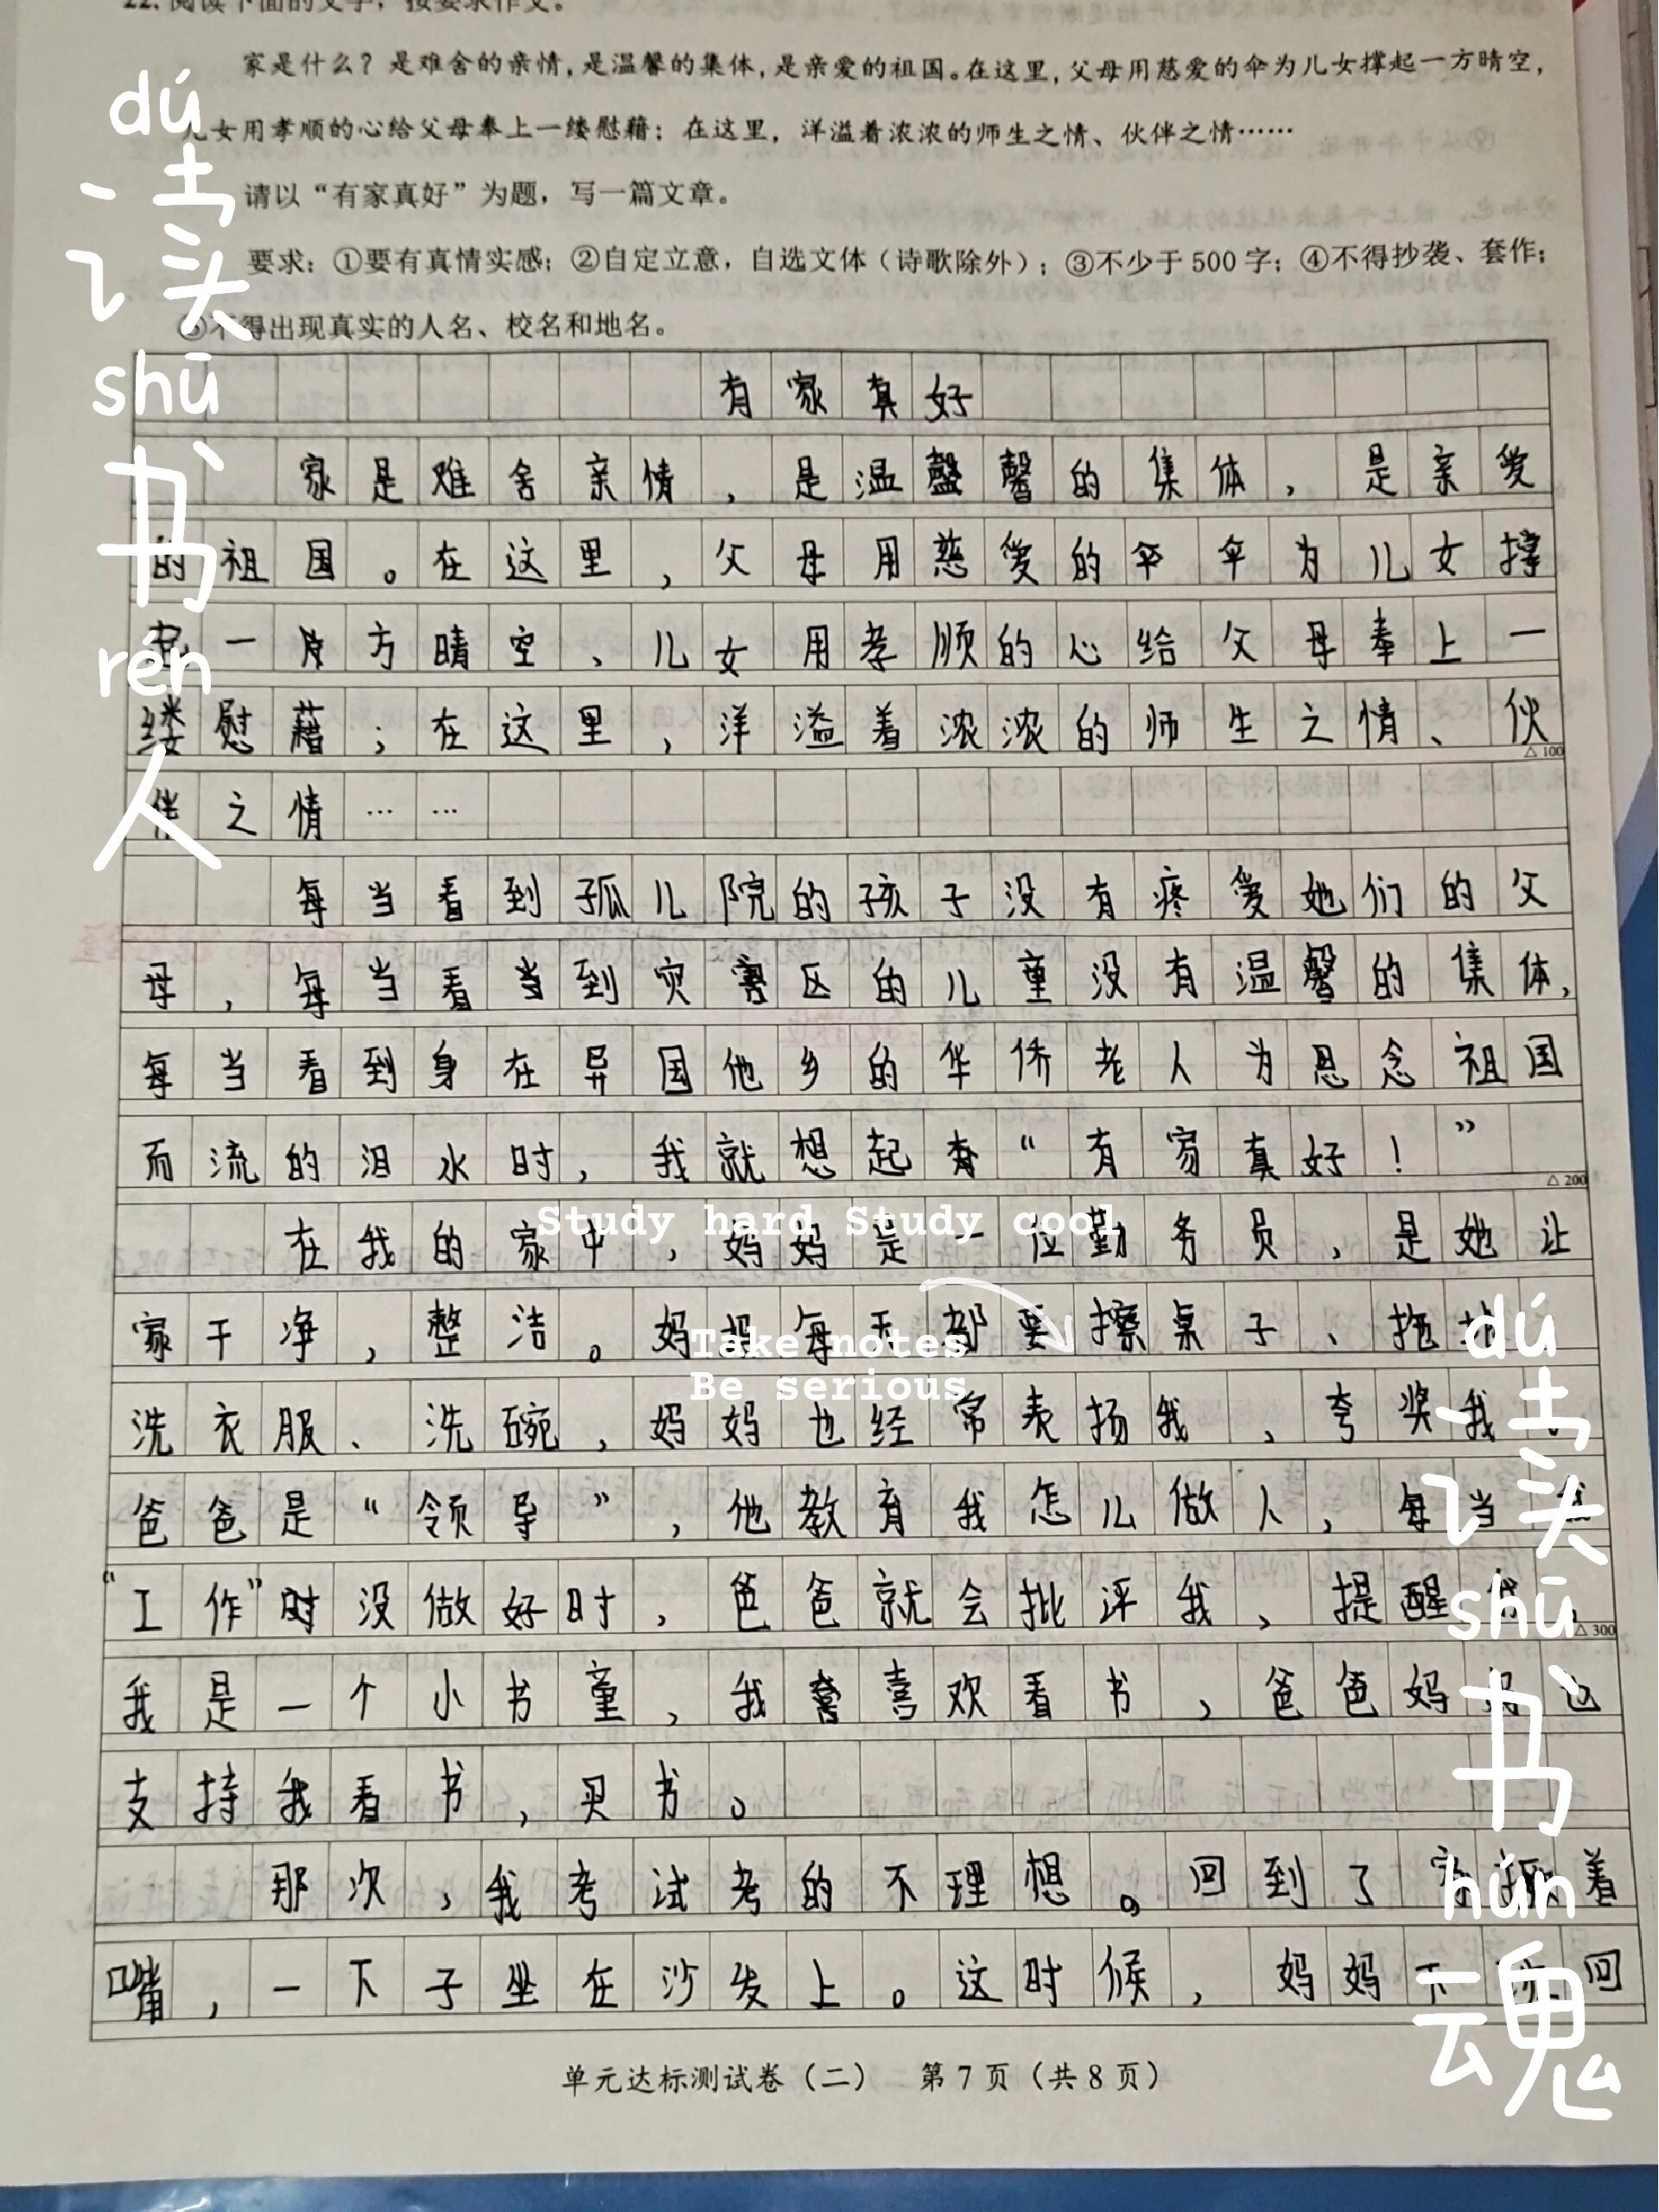 22. 阅读下面的文字，按要求作文。
家是什么？是难舍的亲情，是温馨的集体，是亲爱的祖国。在这里，父母用慈爱的伞为儿女撑起一方晴空，
儿女用孝顺的心给父母奉上一缕慰藉；在这里，洋溢着浓浓的师生之情、伙伴之情……
请以“有家真好”为题，写一篇文章。
要求：①要有真情实感；②自定立意，自选文体（诗歌除外）；③不少于500字；④不得抄袭、套作；
⑤不得出现真实的人名、校名和地名。
有家真好
家是难舍亲情，是温馨的集体，是亲爱
的祖国。在这里，父母用慈爱的伞为儿女撑
起一方晴空、儿女用孝顺的心给父母奉上一
缕慰藉；在这里，洋溢着浓浓的师生之情、伙
△100
伴之情……
每当看到孤儿院的孩子没有疼爱她们的父
母，每当看到灾害区的儿童没有温馨的集体，
每当看到身在异国他乡的华侨老人为思念祖国
而流的泪水时，我就想起“有家真好！”
△200
在我的家中，妈妈是一位勤务员，是她让
家干净，整洁。妈妈每天都要擦桌子、拖地
洗衣服、洗碗，妈妈也经常表扬我，夸奖我。
爸爸是“领导”，他教育我怎么做人，每当我
“工作”时没做好时，爸爸就会批评我，提醒我，
△300
我是一个小书童，我喜欢看书，爸爸妈妈也
支持我看书，买书。
那次，我考试考的不理想。回到了家撅着
嘴，一下子坐在沙发上。这时候，妈妈下班回
单元达标测试卷（二） 第7页（共8页）
dú
读
shū
书
rén
人
Study hard Study cool
Take notes
Be serious
dú
读
shū
书
hún
魂